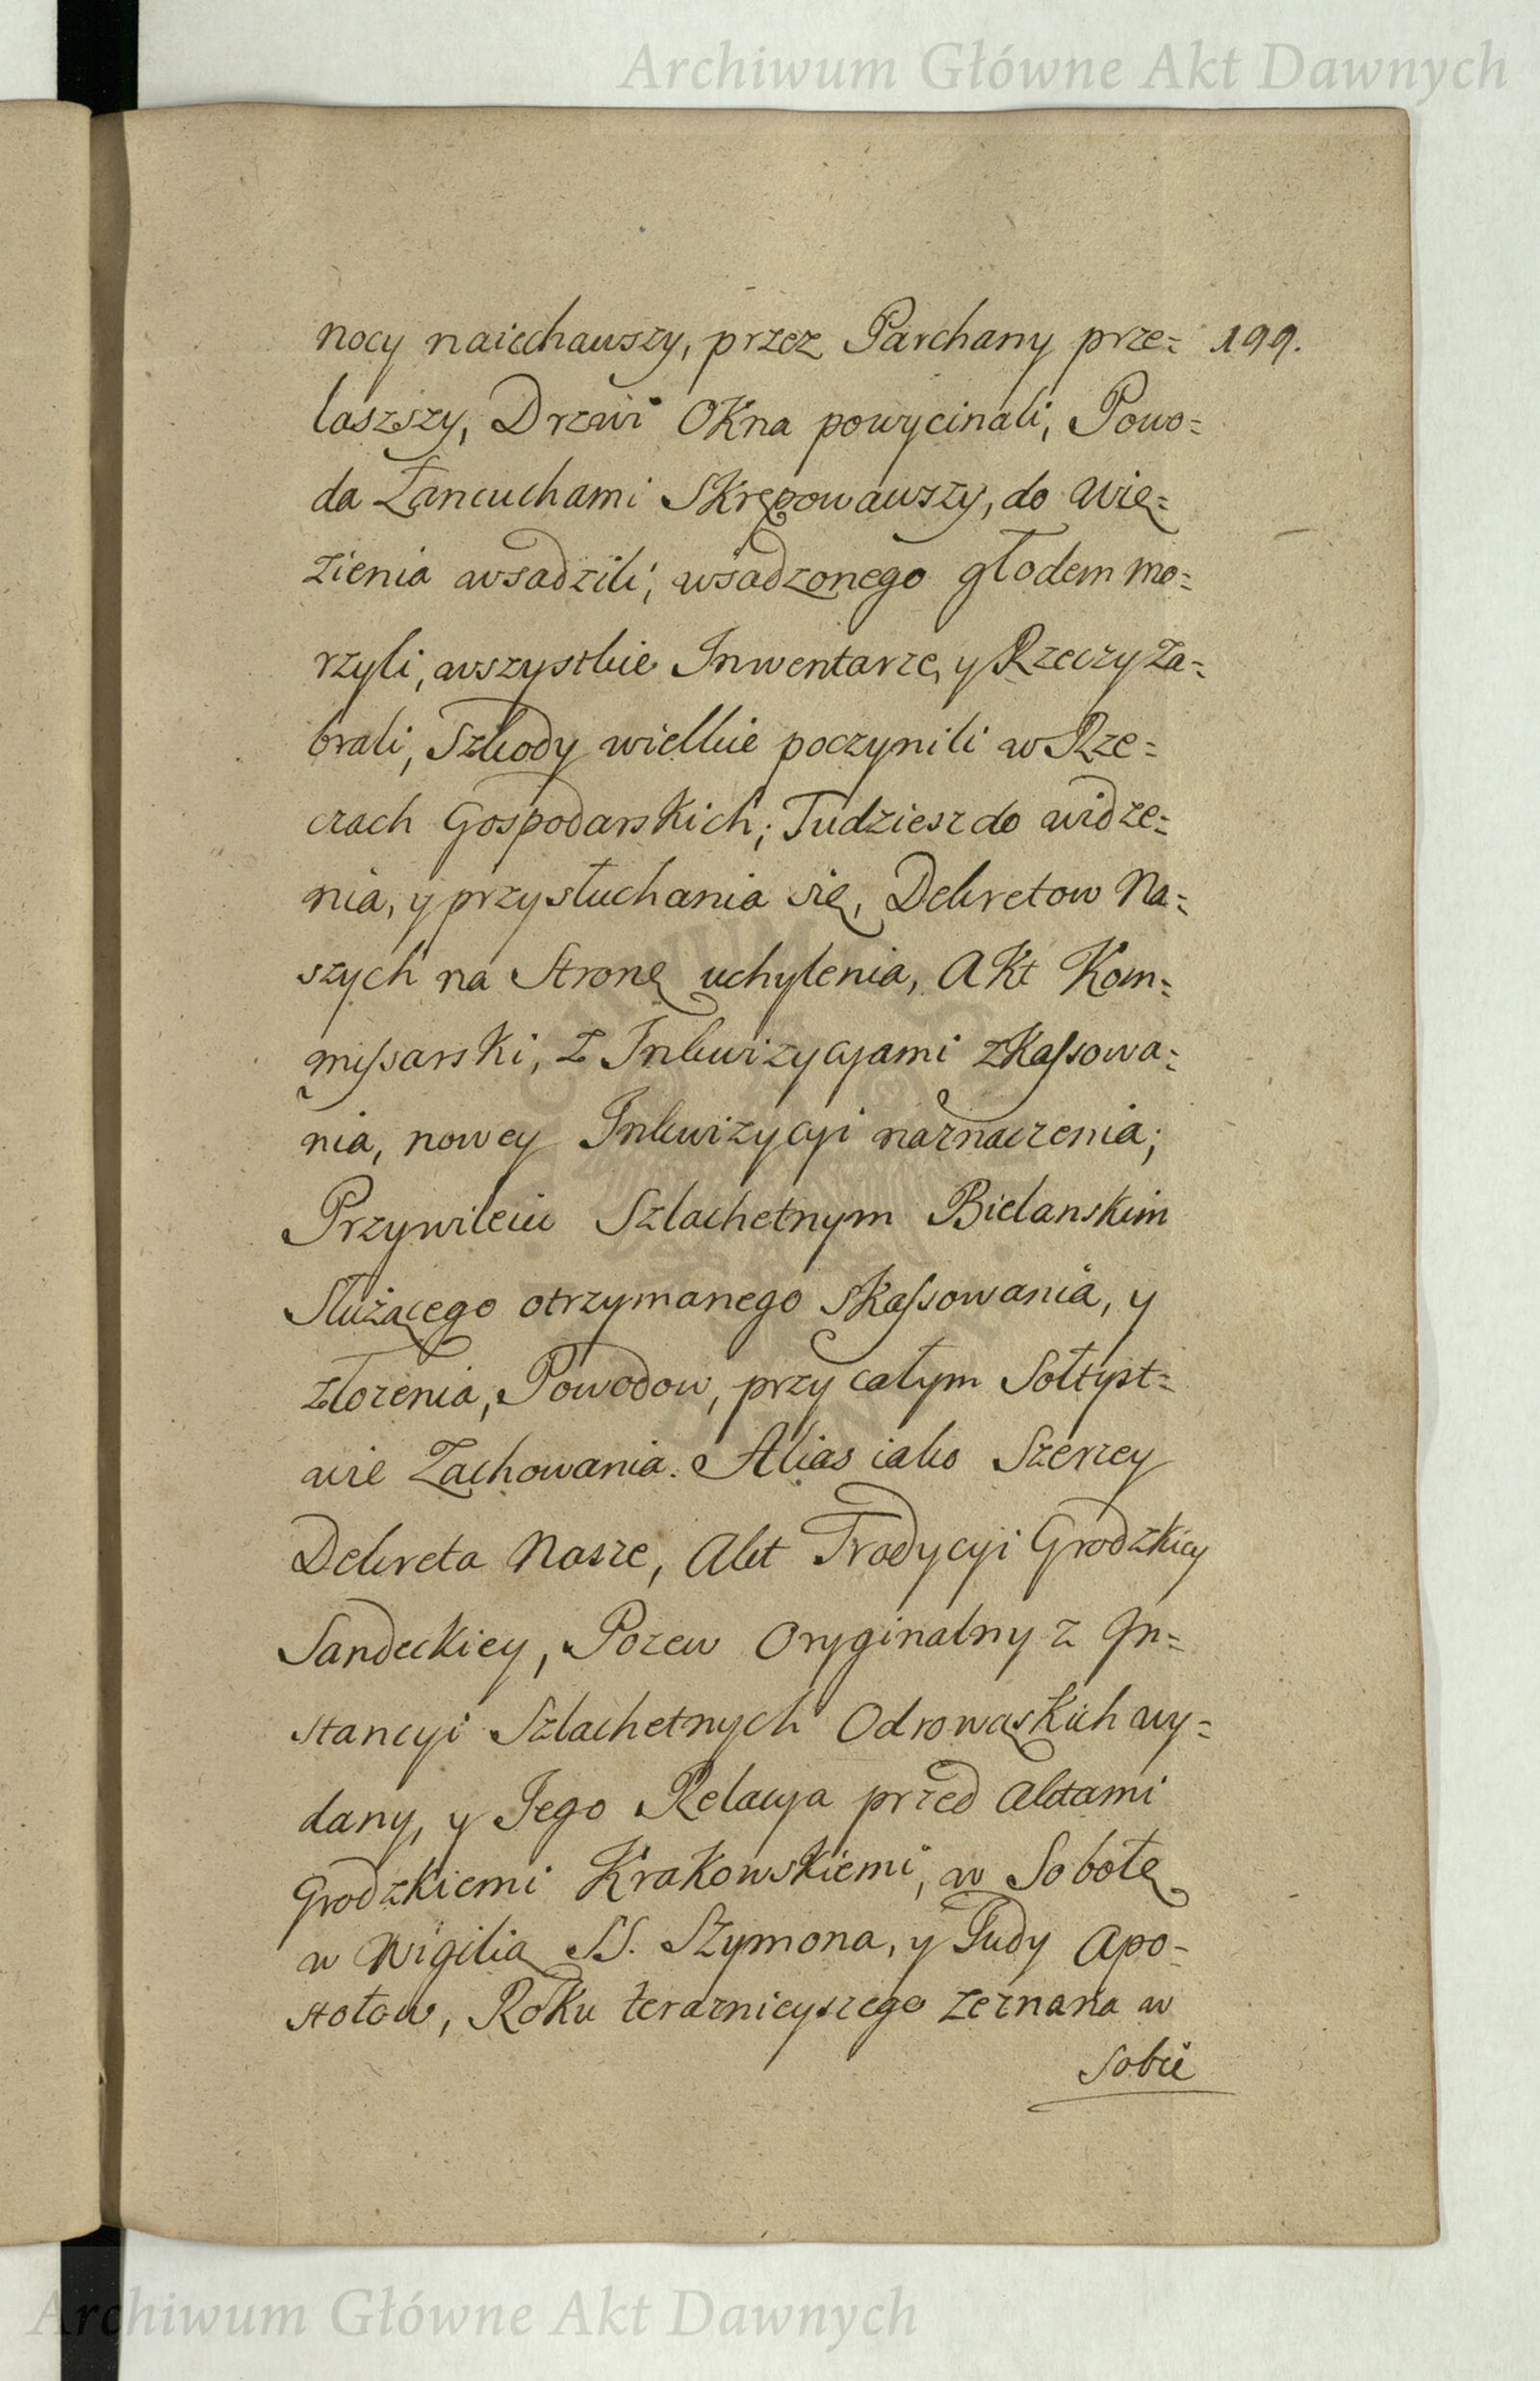 Archiwum Główne Akt Dawnych
nocy naiechawszy, przez Parchany prze= 199.
laszszy, Drzwi Okna powycinali, Powo=
da Łancuchami Skrępowawszy, do Wię=
zienia wsadzili, wsadzonego głodem mo=
rzyli, wszystkie Inwentarze, y Rzeczy za=
brali, Szkody wielkie poczynili w Rze=
czach Gospodarskich; Tudziesz do widze=
nia, y przysłuchania się, Dekretow Na=
szych na Stronę uchylenia, Akt Kom=
missarski, z Inkwizycyami zkassowa=
nia, nowey Inkwizycyi naznaczenia;
Przywileiu Szlachetnym Bielanskim
Służącego otrzymanego skassowania, y
złozenia, Powodow, przy całym Sołtyst=
wie Zachowania. Alias iako Szerzey
Dekreta Nasze, Akt Tradycyi Grodzkiey
Sandeckiey, Pozew Oryginalny z In=
stancyi Szlachetnych Odrowąskich wy=
dany, y Jego Relacya przed Aktami
Grodzkiemi Krakowskiemi, w Sobotę
w Wigilią SS. Szymona, y Judy Apo=
stołow, Roku terazniejszego zeznana w
Sobie
Archiwum Główne Akt Dawnych